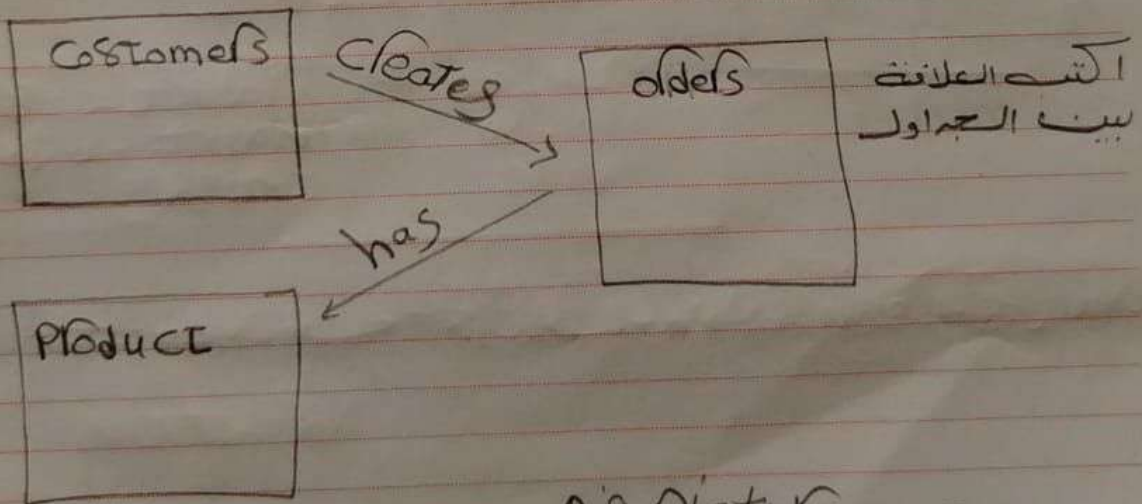 Costomers
Creates
orders
اكتب العلاقة
بين الجداول
has
Product